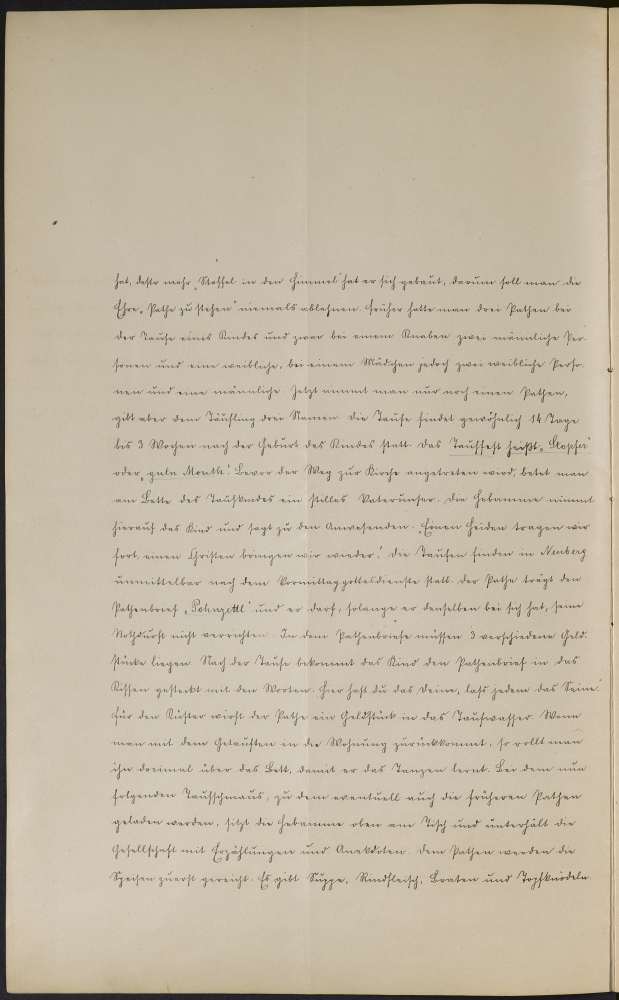 hat, desto mehr „Staffel in den Himmel" hat er sich gebaut, darum soll man die
Ehre „Pathe zu stehen" niemals ablehnen. Früher hatte man drei Pathen bei
der Taufe eines Kindes und zwar bei einem Knaben zwei männliche Per-
sonen und eine weibliche, bei einem Mädchen jedoch zwei weibliche Perso-
nen und eine männliche. Jetzt nimmt man nur noch einen Pathen,
gibt aber dem Täufling drei Namen. Die Taufe findet gewöhnlich 14 Tage
bis 3 Wochen nach der Geburt des Kindes statt. Das Tauffest heißt
oder Bevor der Weg zur Kirche angetreten wird, betet man
am Bette des Taufkindes ein stilles Vaterunser. Die Hebamme nimmt
hierauf das Kind und sagt zu den Anwesenden: „Einen Heiden tragen wir
fort, einen Christen bringen wir wieder." Die Taufen finden in Neuberg
unmittelbar nach dem Vormittaggottesdienste statt. Der Pathe trägt den
Pathenbrief und er darf, solange er denselben bei sich hat, seine
Nothdurft nicht verrichten. In dem Pathenbriefe müssen 3 verschiedene Geld-
stücke liegen. Nach der Taufe bekommt das Kind den Pathenbrief in das
Kissen gesteckt mit den Worten: Hier hast du das Deine, lass jedem das Seine."
Für den Küster wirft der Pathe ein Geldstück in das Taufwasser. Wenn
man mit dem Getauften in die Wohnung zurückkommt, so rollt man
ihn dreimal über das Bett, damit er das Tanzen lernt. Bei dem nun
folgenden Taufschmaus, zu dem eventuell auch die früheren Pathen
geladen werden, sitzt die Hebamme oben am Tisch und unterhält die
Gesellschaft mit Erzählungen und Anekdoten. Dem Pathen werden die
Speisen zuerst gereicht. Es gibt Suppe, Rindfleisch, Braten und Topfknödeln.